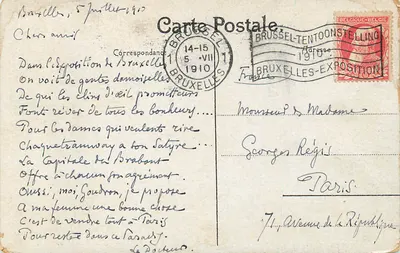 Bruxelles, 5 Juillet 1910
Carte Postale.
Chers amis
Correspondance
BRUSSEL 1
14-15
5 ·VII
1910
1 BRUXELLES 1
BRUSSEL-TENTOONSTELLING
1910
BRUXELLES-EXPOSITION
Dans l'Exposition de Bruxelles
On voit de gentes damoiselles
De qui les clins d'œil prometteurs
Font rêver de tous les bonheurs....
Pour les dames qui veulent rire
Chaque tramway a son Satyre...
La Capitale du Brabant
Offre à chacun son agrément.
Aussi, moi, Goudron, je propose
A ma femme une bonne chose
C'est de vendre tout à Paris
Pour rester dans ce Paradis.
Le Docteur
Monsieur des Madame
Georges Régis
Paris
71, Avenue de la République